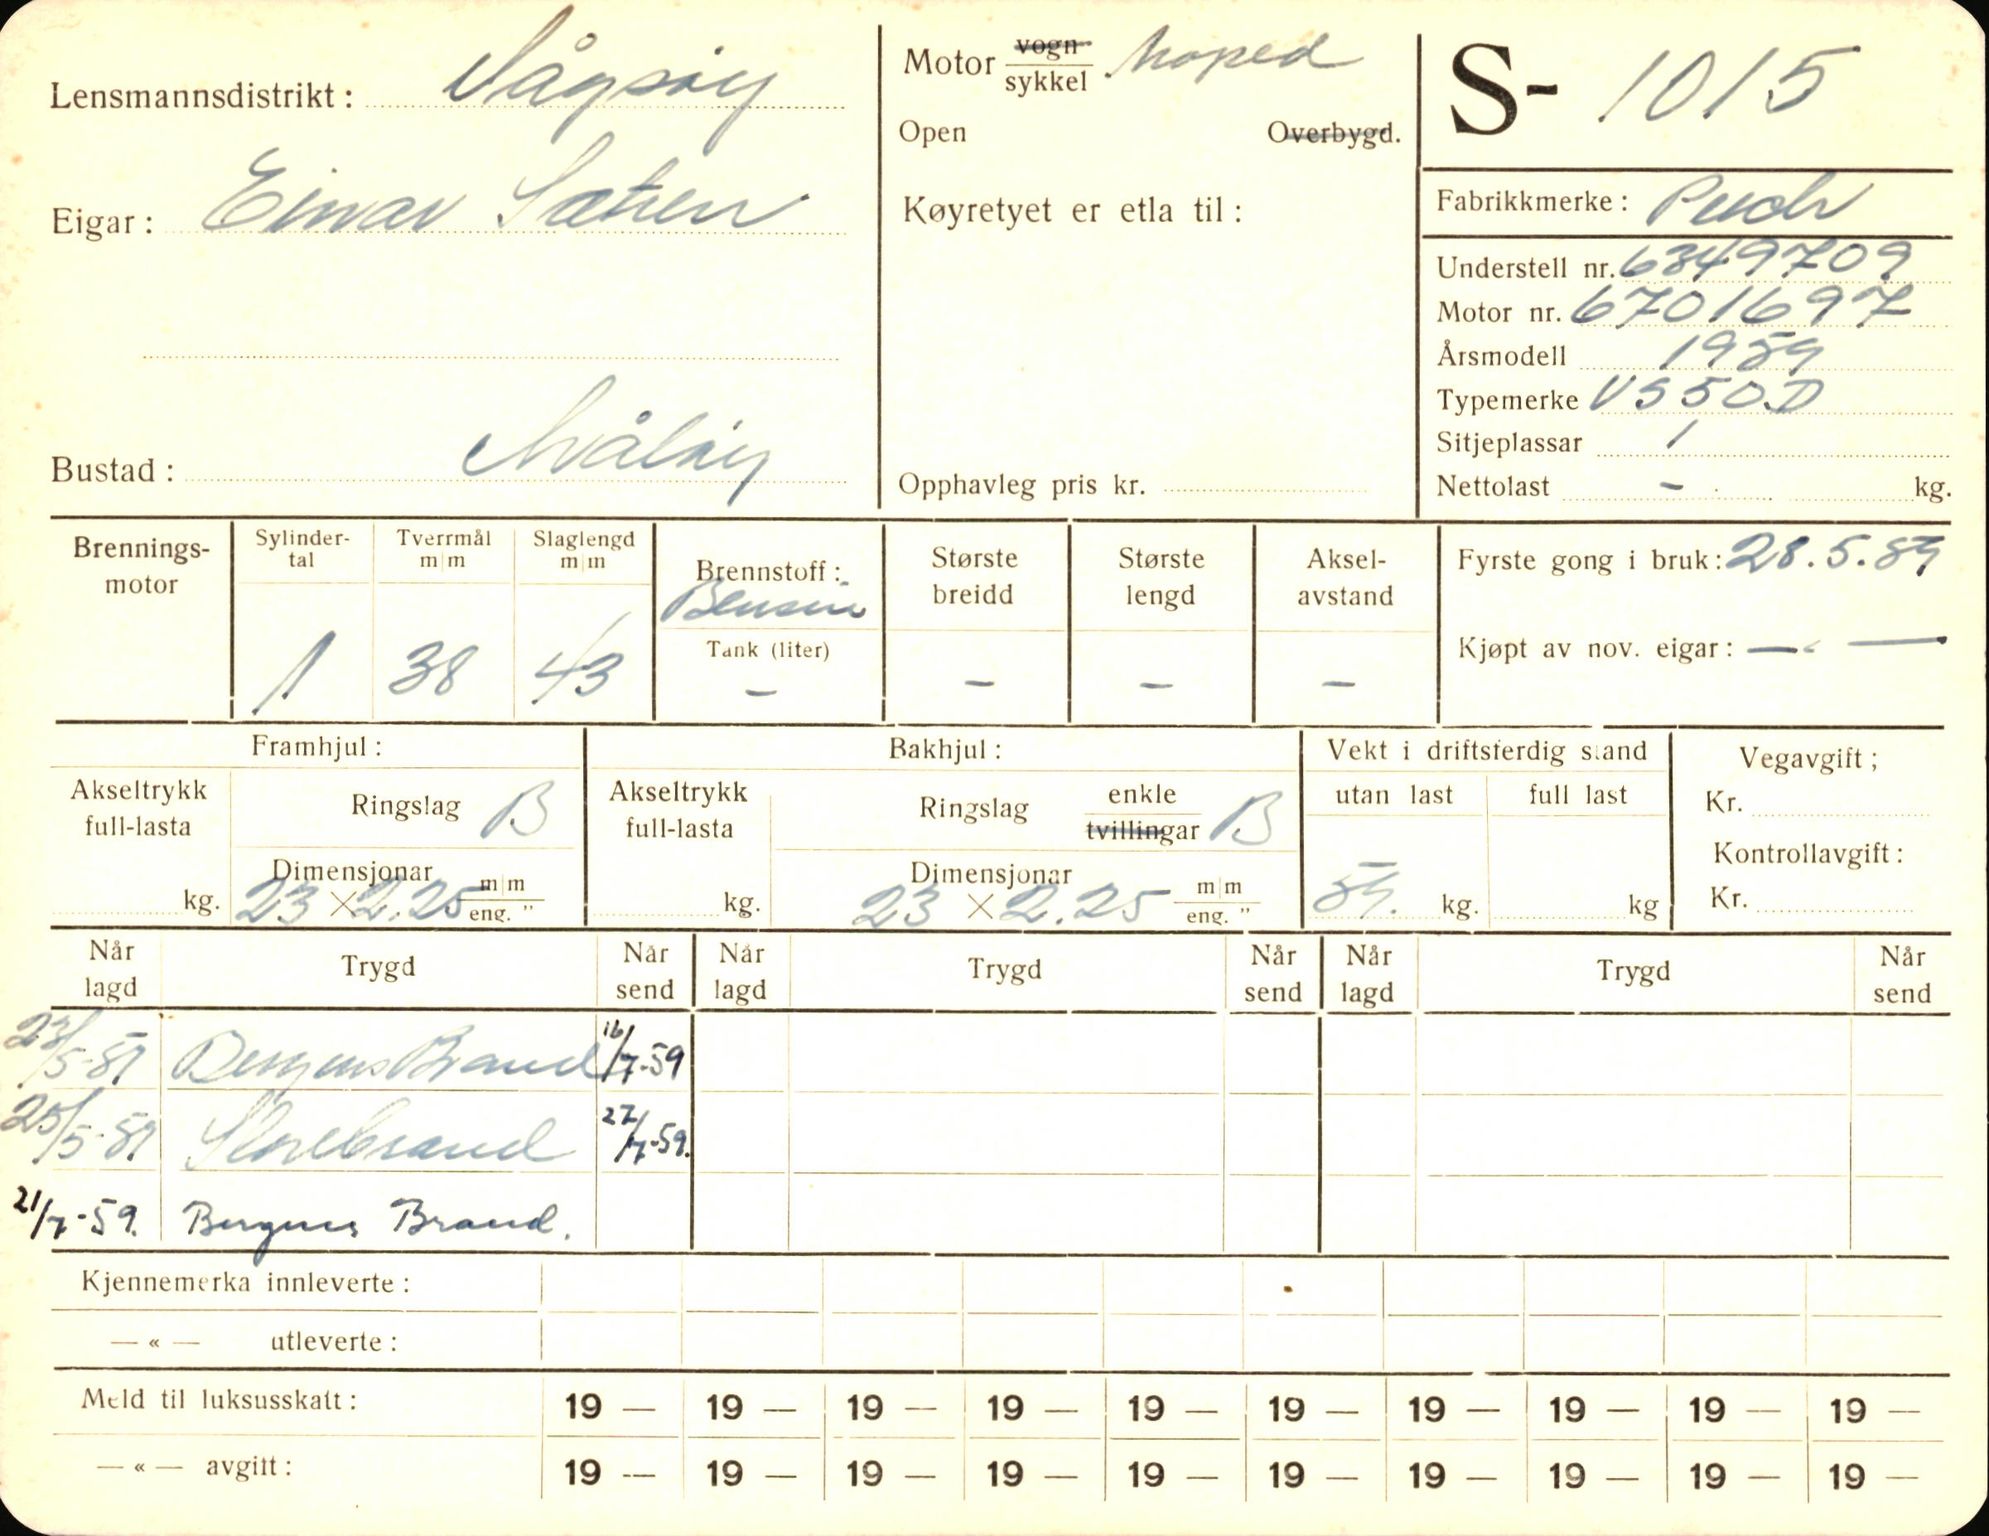 Lensmannsdistrikt: Vågsøy
Eigar: Einar Sætren
Bustad: Måløy
Motor vogn sykkel Moped
Open Overbygd.
Køyretyet er etla til:
Opphavleg pris kr.
S- 1015
Fabrikkmerke: Puch
Understell nr. 6349709
Motor nr. 6701697
Årsmodell 1959
Typemerke VS50D
Sitjeplassar 1
Nettolast - kg.
Brennings-
motor
Sylinder-
tal
1
Tverrmål
m|m
38
Slaglengd
m|m
43
Brennstoff:
Bensin
Tank (liter)
-
Største
breidd
-
Største
lengd
-
Aksel-
avstand
-
Fyrste gong i bruk: 28.5.59
Kjøpt av nov. eigar: — " —
Framhjul:
Akseltrykk
full-lasta
kg.
Ringslag B
Dimensjonar
23 × 2.25 m|m eng. "
Bakhjul:
Akseltrykk
full-lasta
kg.
Ringslag enkle tvillingar B
Dimensjonar
23 × 2.25 m|m eng. "
Vekt i driftsferdig stand
utan last full last
59. kg. kg
Vegavgift;
Kr.
Kontrollavgift:
Kr.
Når lagd Trygd Når send Når lagd Trygd Når send Når lagd Trygd Når send
23/5-59 Bergens Brand 16/7-59
25/5-59 Storebrand 27/7-59.
21/7-59. Bergens Brand.
Kjennemerka innleverte:
— « — utleverte:
Meld til luksusskatt: 19 — 19 — 19 — 19 — 19 — 19 — 19 — 19 — 19 — 19 —
— « — avgift: 19 — 19 — 19 — 19 — 19 — 19 — 19 — 19 — 19 — 19 —